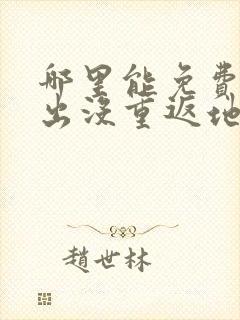 那里能免費
出沒重返地
趙世林